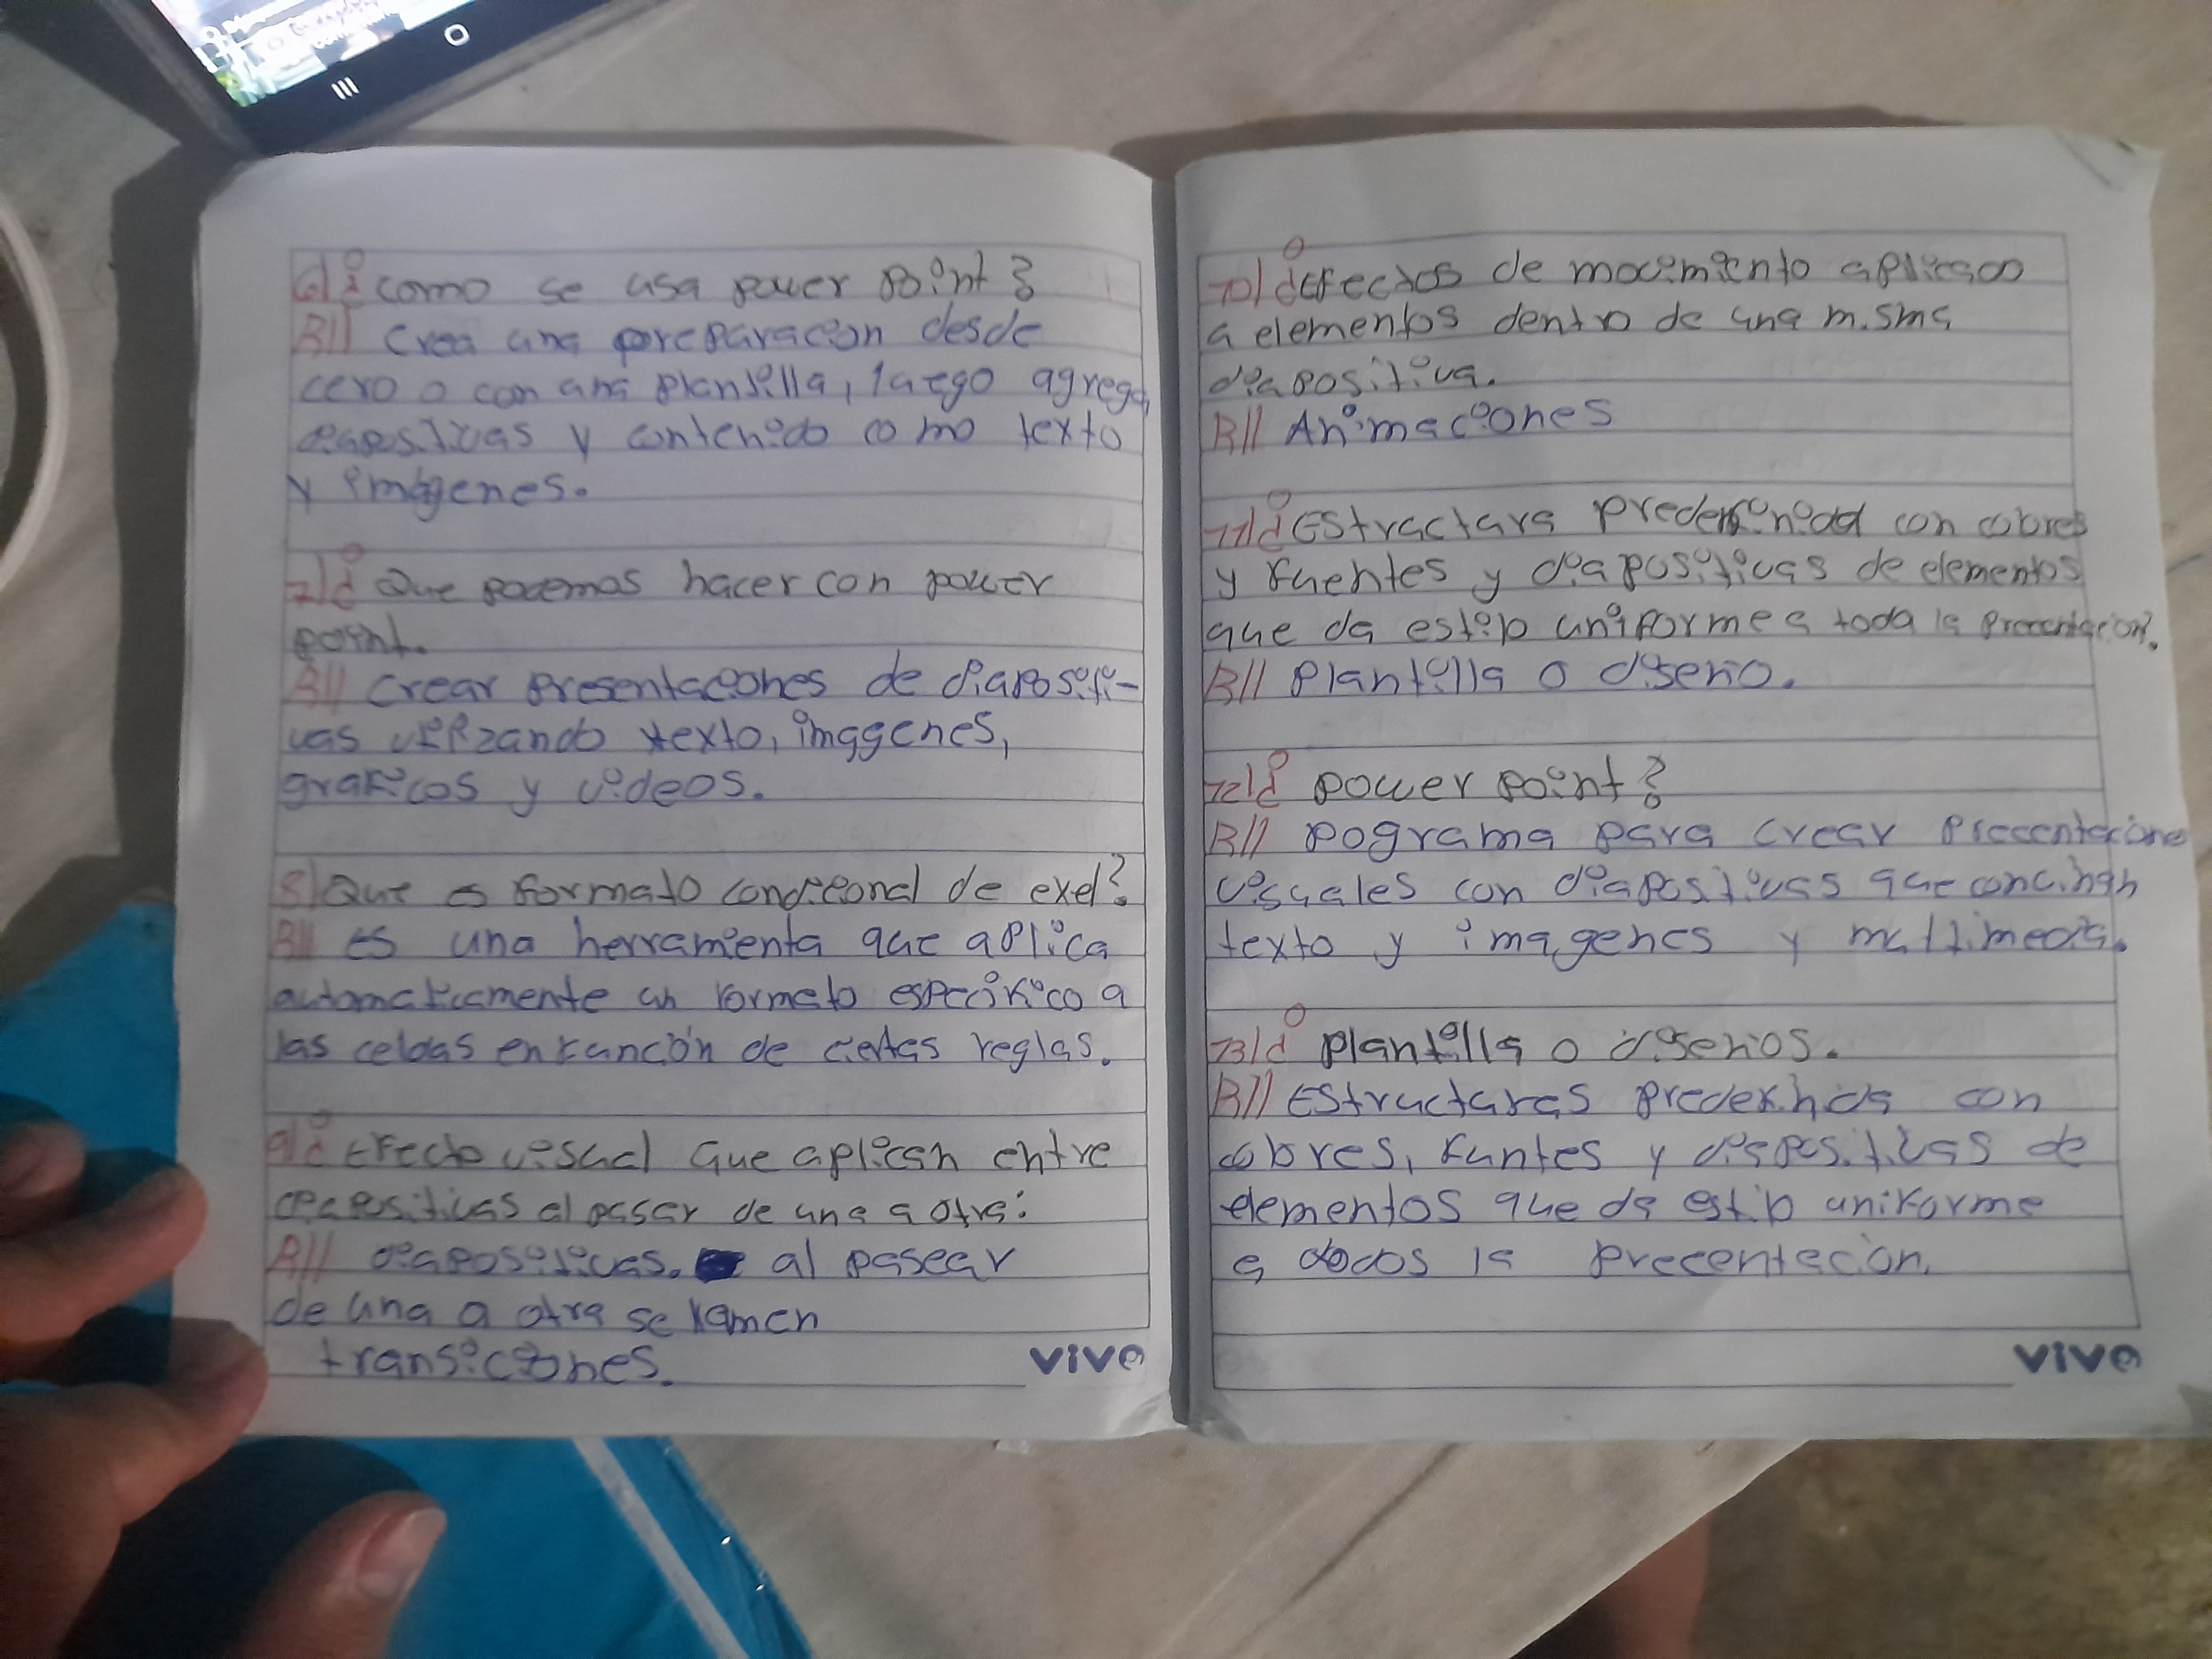 6) ¿como se usa power point?
R// Crea una preparacion desde
cero o con una plantilla, luego agrega
diapositivas y contenido como texto
y imágenes.
7) ¿Que podemos hacer con power
point.
R// Crear presentaciones de diapositi-
vas utilizando texto, imagenes,
graficos y videos.
8) Que es formato condicional de exel?
R// es una herramienta que aplica
automaticamente un formato especifico a
las celdas en función de ciertas reglas.
9) ¿Efecto visual que aplican entre
diapositivas al pasar de una a otra:
R// diapositivas. al pasear
de una a otra se
transiciones.
vive
10) ¿Efectos de movimiento aplicado
a elementos dentro de una misma
diapositiva.
R// Animaciones
11) ¿Estructura con colores
y fuentes y diapositivas de elementos
que da estilo uniforme a toda la
R// Plantilla o diseño.
12) ¿power point?
R// pograma para crear
visuales con diapositivas que
texto y imagenes y multimedia.
13) ¿plantilla o diseños.
R// Estructuras con
colores, funtes y diapositivas de
elementos que da estilo uniforme
a la precentacion.
vive